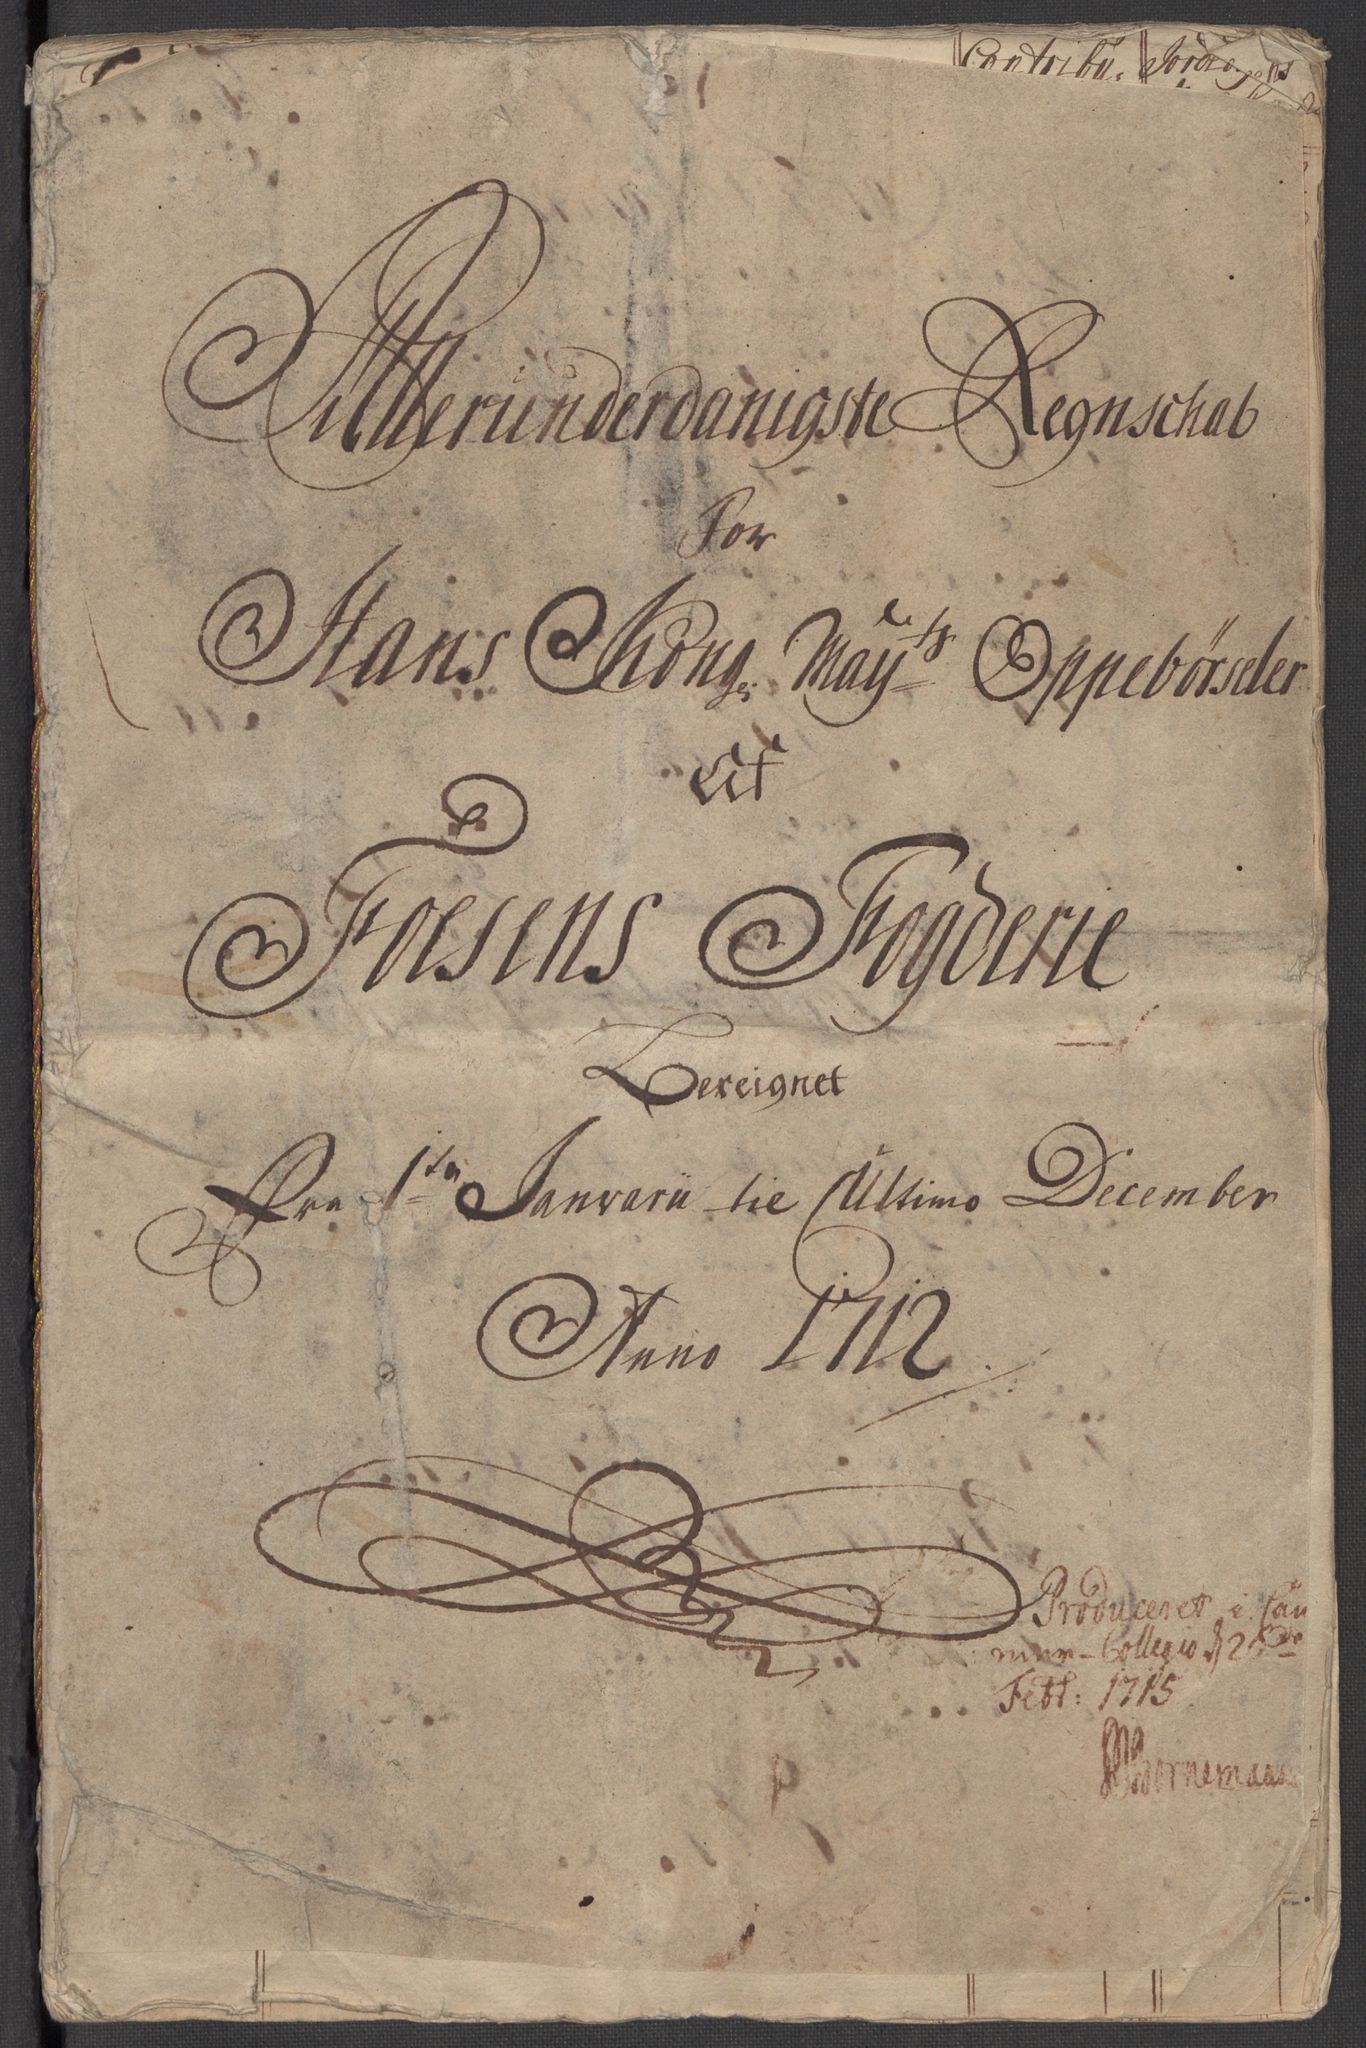 Contribu: Jordeb
Allerunderdanigste Regnschab
For
Hans Kong. Mayts Oppebörseler
Af
Foesens Fogderie
Bereignet
Fra 1ten Januarii til Ultimo December
Anno 1712
Produceret i Cam
mer-Collegio d 26de
Febr: 1715
Bornemann